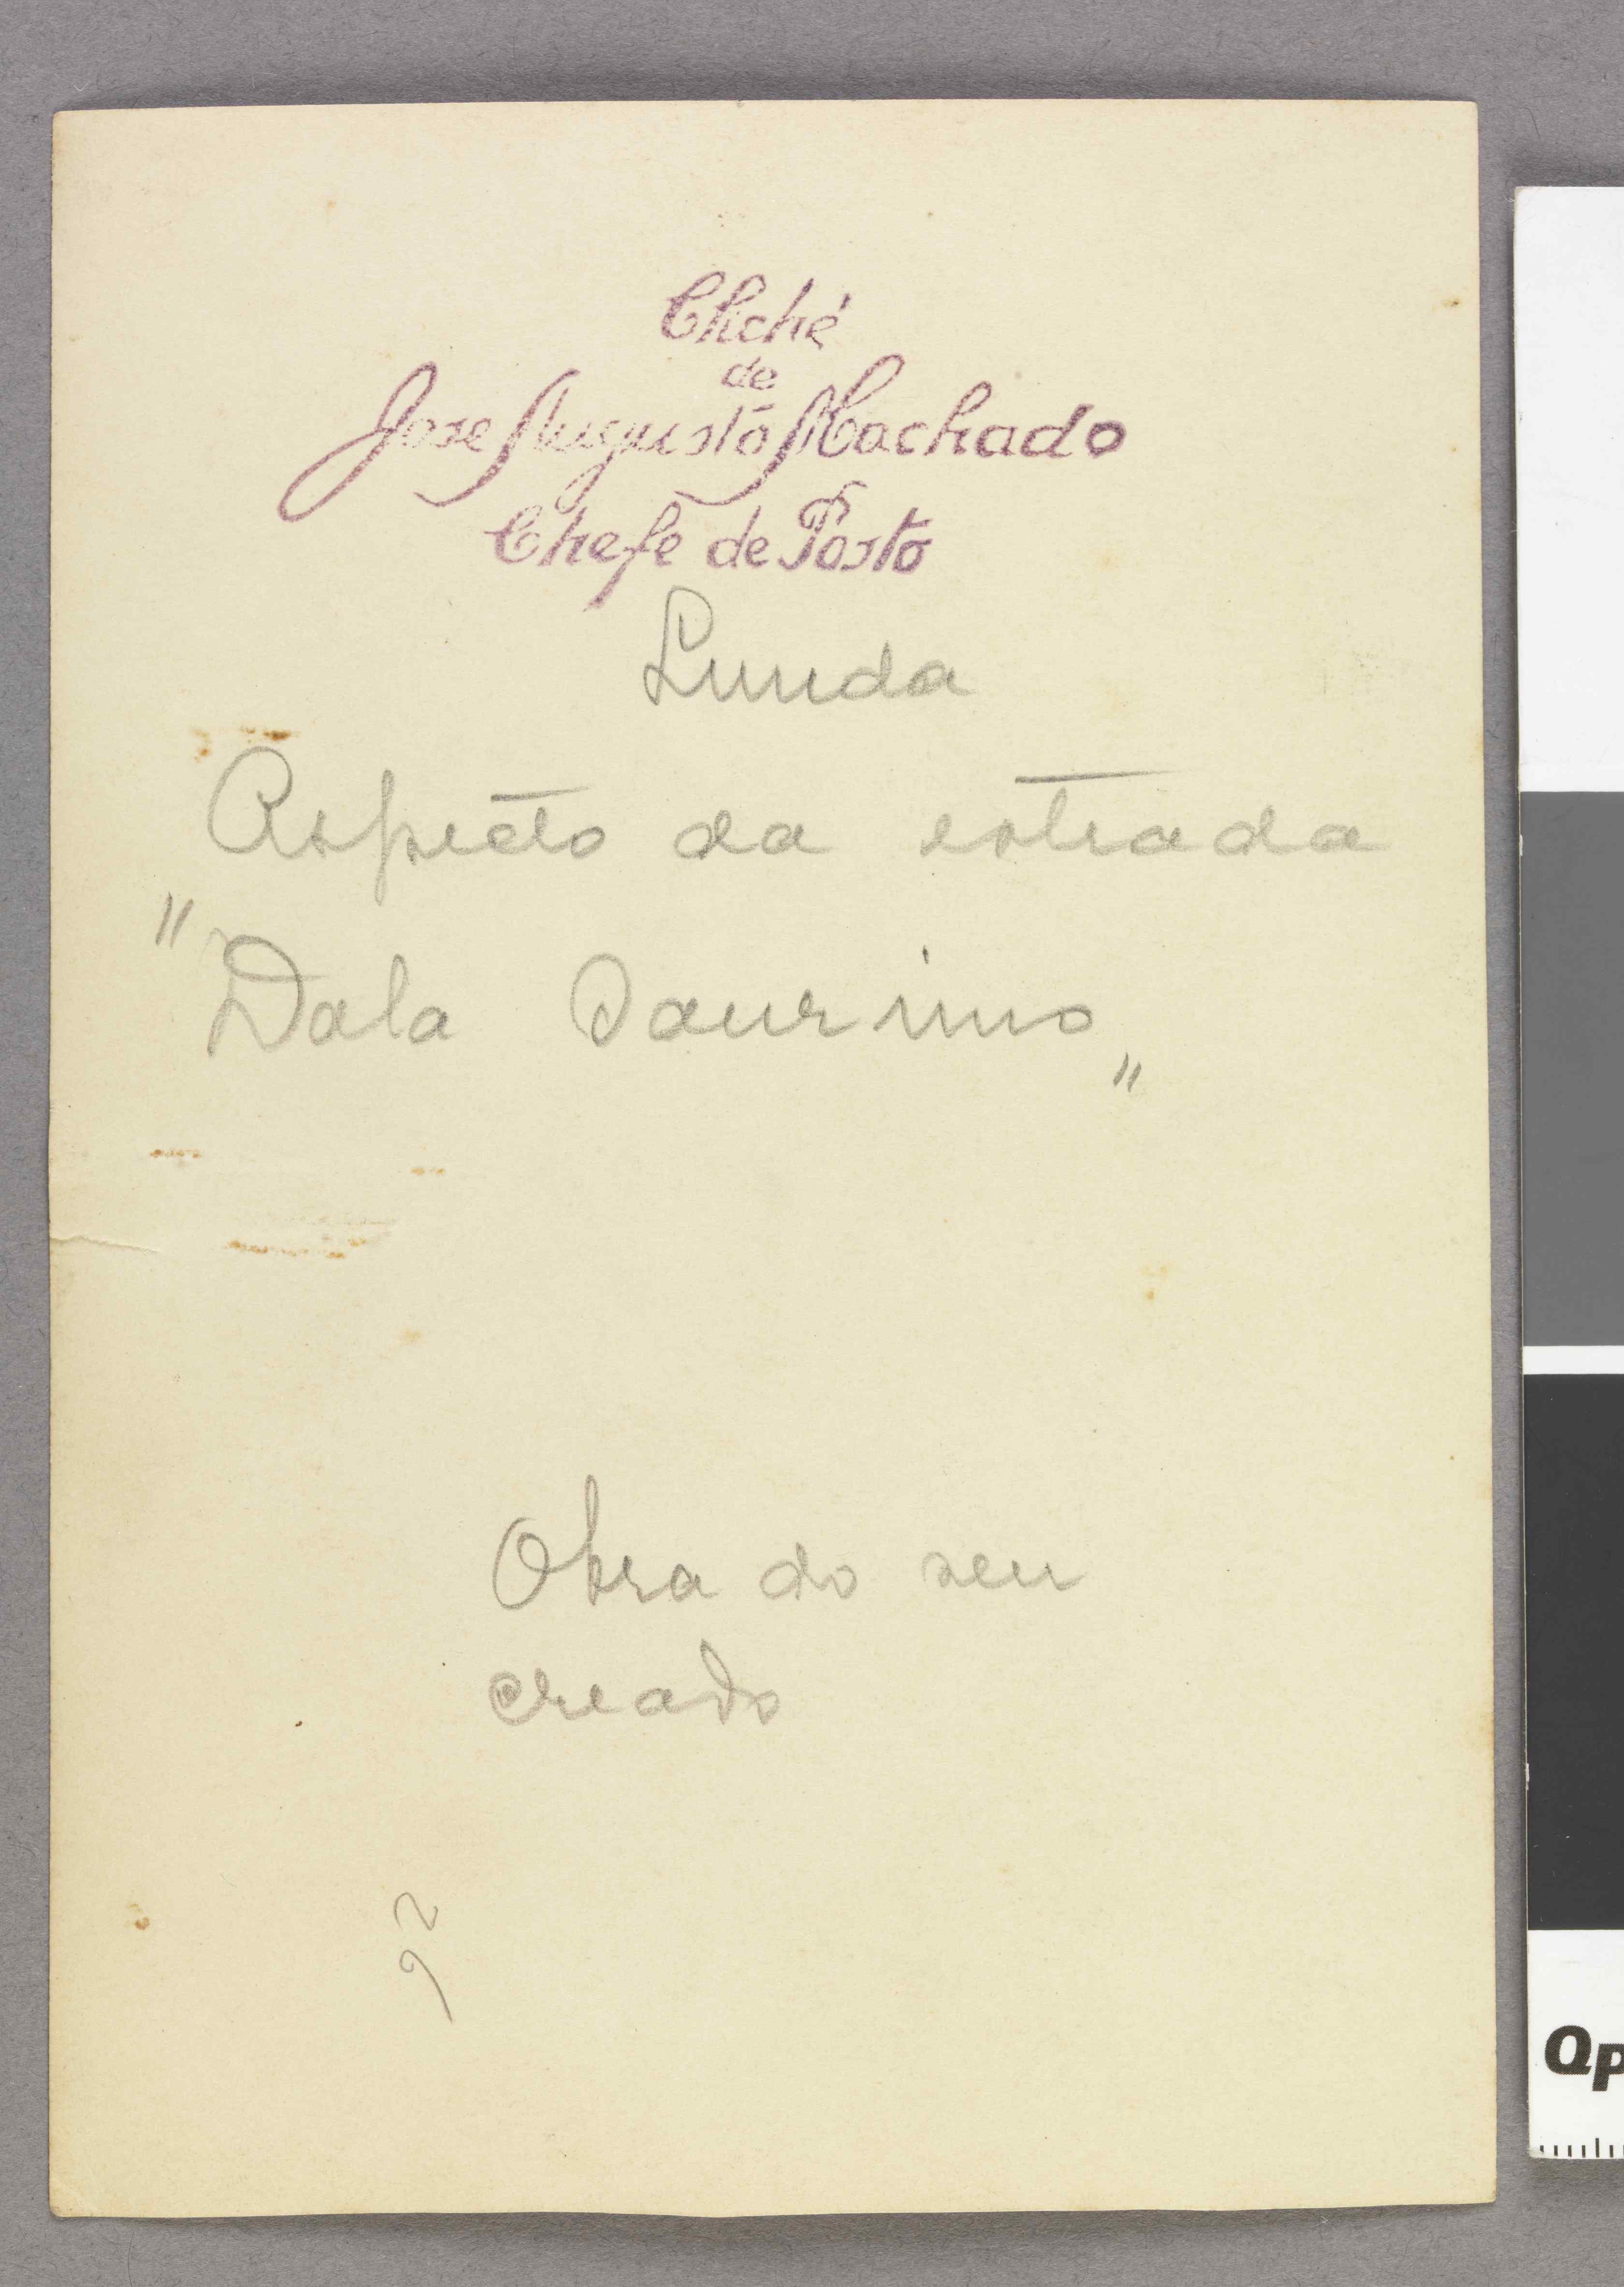 Cliché
de
Jose Augusto Machado
Chefe de Posto
Lunda
Aspécto da estrada
"Dala Saurimo"
Obra do seu
creado
92
Qp